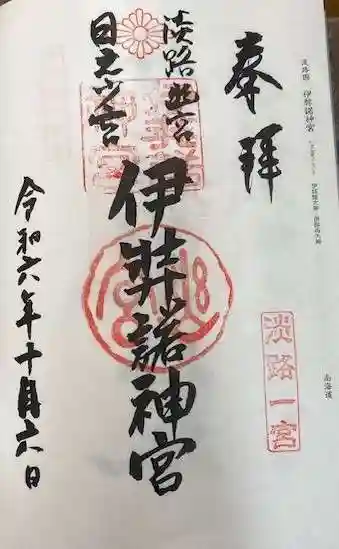 奉拝
淡路國 伊弉諾神宮
南海道
淡路一宮
淡路幽宮
日之少宮
伊弉諾神宮
令和六年十月六日